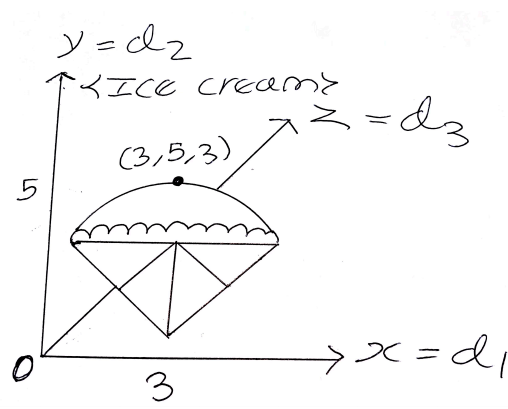 y = d₂
<Ice cream>
z = d₃
(3,5,3)
5
0
3
x = d₁